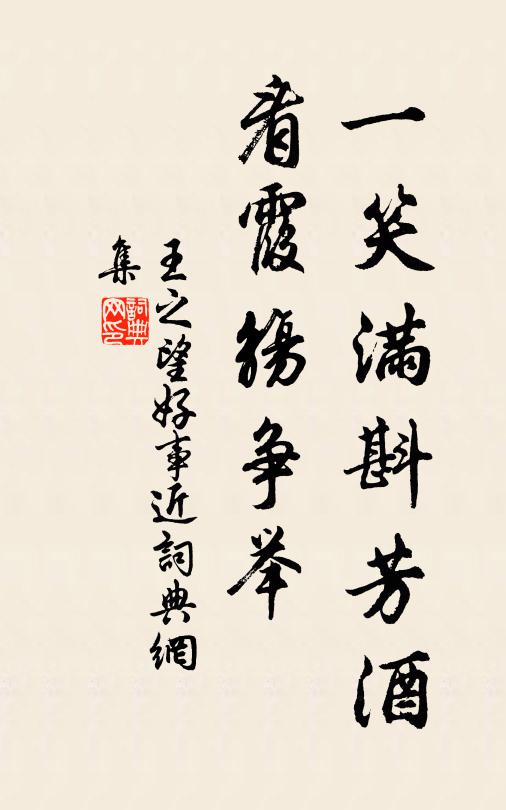 一笑滿斟芳酒
看霞觴争举
王之望好事近詞典網
集
詞典网印